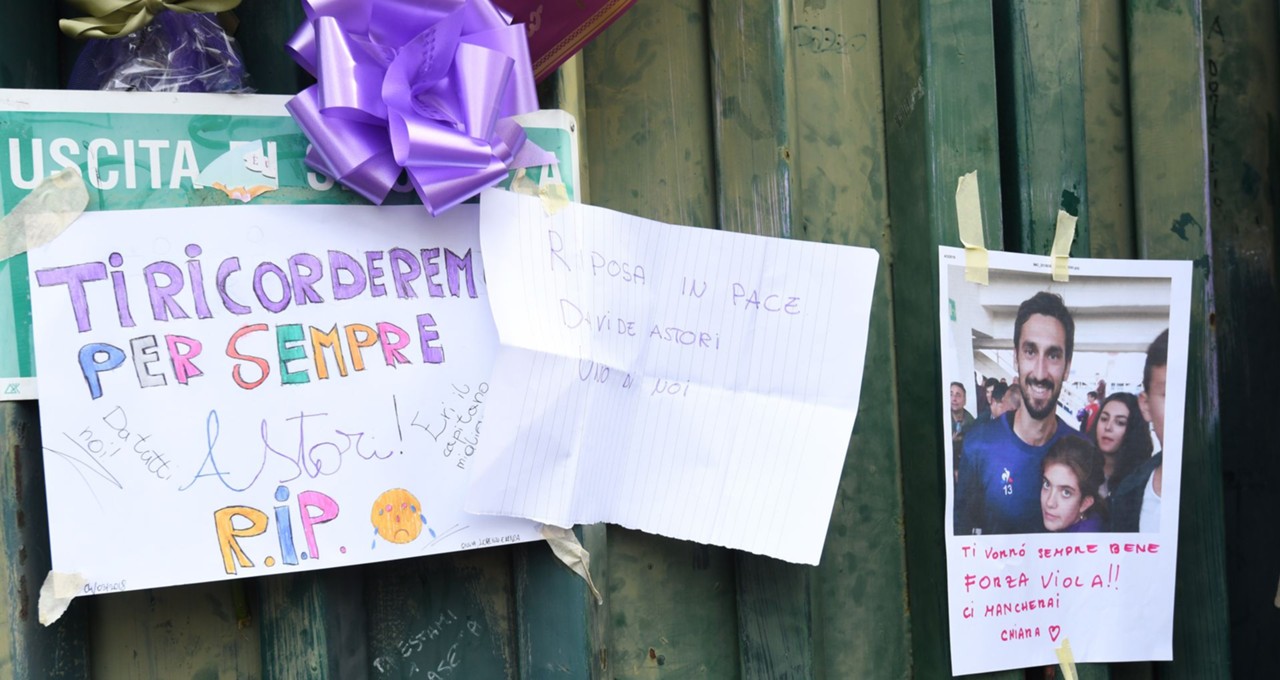 USCITA
TI RICORDEREM
PER SEMPRE
Astori!
Da tutti
noi!
Eri il
capitano
R.I.P.
RIPOSA IN PACE
DAVIDE ASTORI
UNO DI NOI
13
TI VORRÓ SEMPRE BENE
FORZA VIOLA!!
CI MANCHERAI
CHIARA ♡